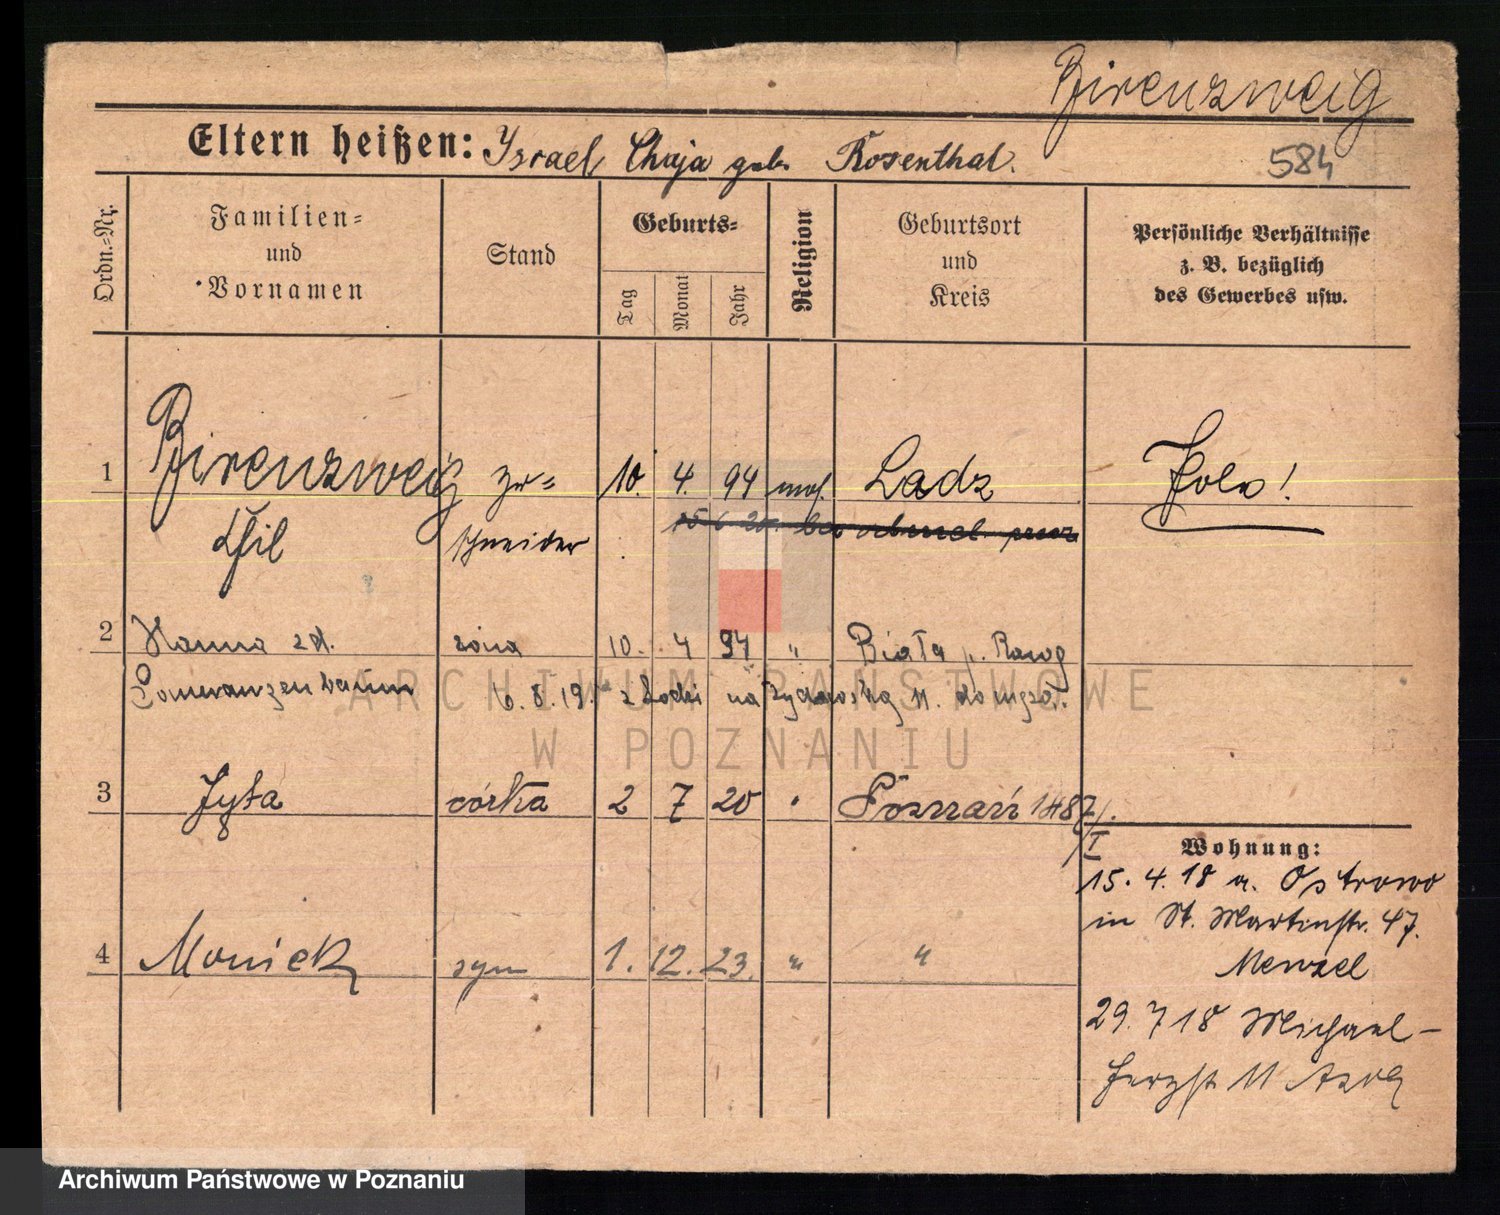 Birenzweig
Eltern heißen: Israel, Chaja geb. Rosenthal.
584
Ordn.-Nr.
Familien-
und
Vornamen
Stand
Geburts-
Tag
Monat
Jahr
Religion
Geburtsort
und
Kreis
Persönliche Verhältnisse
z. B. bezüglich
des Gewerbes usw.
1 Birenzweig Zu- 10. 4. 94 mos. Lodz Pole!
Chil schneider
2 Hanna zd. żona 10. 4 94 " Biała p. Rawa
Pomeranzenbaum 6. 8. 19. z Łodzi na Żydowską 11.
3 Gyta córka 2 7 20 " Poznań 1487/
I
Wohnung:
15. 4. 18 a. Ostrowo
in St. Martinstr. 47.
Menzel
4 Moniek syn 1. 12. 23. " "
29. 7 18 Michael-
11
ARCHIWUM PAŃSTWOWE
W POZNANIU
Archiwum Państwowe w Poznaniu